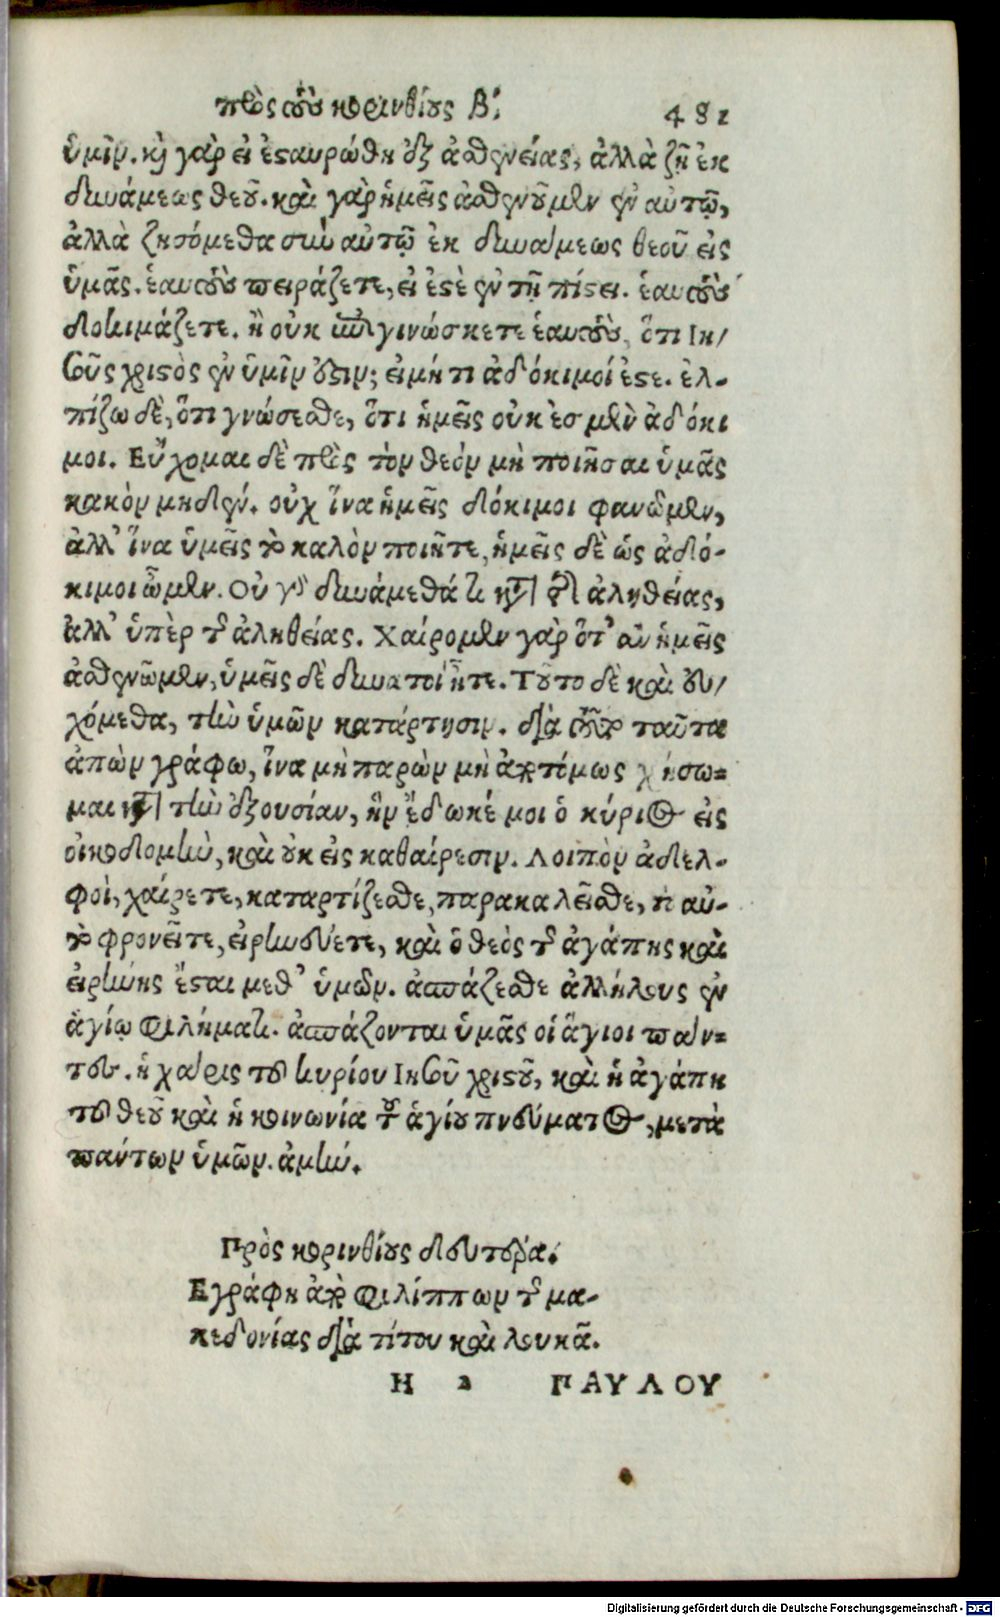 πρὸς τοὺς κορινθίους Β´. 481
ὑμῖν. καὶ γὰρ εἰ ἐσταυρώθη ἐξ ἀσθενείας, ἀλλὰ ζῇ ἐκ
δυνάμεως θεοῦ. καὶ γὰρ ἡμεῖς ἀσθενοῦμεν ἐν αὐτῷ,
ἀλλὰ ζησόμεθα σὺν αὐτῷ ἐκ δυνάμεως θεοῦ εἰς
ὑμᾶς. ἑαυτοὺς πειράζετε, εἰ ἐστὲ ἐν τῇ πίστει. ἑαυτοὺς
δοκιμάζετε. ἢ οὐκ ἐπιγινώσκετε ἑαυτοὺς, ὅτι Ιη/
σοῦς χριστὸς ἐν ὑμῖν ἐστιν; εἰμήτι ἀδόκιμοί ἐστε. ἐλ-
πίζω δὲ, ὅτι γνώσεσθε, ὅτι ἡμεῖς οὐκ ἐσμὲν ἀδόκι
μοι. Εὔχομαι δὲ πρὸς τὸν θεὸν μὴ ποιῆσαι ὑμᾶς
κακὸν μηδέν. οὐχ ἵνα ἡμεῖς δόκιμοι φανῶμεν,
ἀλλ' ἵνα ὑμεῖς τὸ καλὸν ποιῆτε, ἡμεῖς δὲ ὡς ἀδό-
κιμοι ὦμεν. Οὐ γὰρ δυνάμεθά τι κατὰ τῆς ἀληθείας,
ἀλλ' ὑπὲρ τῆς ἀληθείας. Χαίρομεν γὰρ ὅτ' ἂν ἡμεῖς
ἀσθενῶμεν, ὑμεῖς δὲ δυνατοὶ ἦτε. Τοῦτο δὲ καὶ εὐ/
χόμεθα, τὴν ὑμῶν κατάρτησιν. διὰ τοῦτο ταῦτα
ἀπὼν γράφω, ἵνα μὴ παρὼν μὴ ἀποτόμως χρήσω-
μαι κατὰ τὴν ἐξουσίαν, ἣν ἔδωκέ μοι ὁ κύριος εἰς
οἰκοδομὴν, καὶ οὐκ εἰς καθαίρεσιν. Λοιπὸν ἀδελ-
φοὶ, χαίρετε, καταρτίζεσθε, παρακαλεῖσθε, τὸ αὐ-
τὸ φρονεῖτε, εἰρηνεύετε, καὶ ὁ θεὸς τῆς ἀγάπης καὶ
εἰρήνης ἔσται μεθ' ὑμῶν. ἀσπάζεσθε ἀλλήλους ἐν
ἁγίῳ φιλήματι. ἀσπάζονται ὑμᾶς οἱ ἅγιοι πάν-
τες. ἡ χάρις τοῦ κυρίου Ιησοῦ χριστοῦ, καὶ ἡ ἀγάπη
τοῦ θεοῦ καὶ ἡ κοινωνία τοῦ ἁγίου πνεύματος, μετὰ
πάντων ὑμῶν. ἀμήν.
Πρὸς κορινθίους δευτέρα.
Εγράφη ἀπὸ φιλίππων τῆς μα-
κεδονίας διὰ τίτου καὶ λουκᾶ.
Η 2 ΠΑΥΛΟΥ
Digitalisierung gefördert durch die Deutsche Forschungsgemeinschaft - DFG